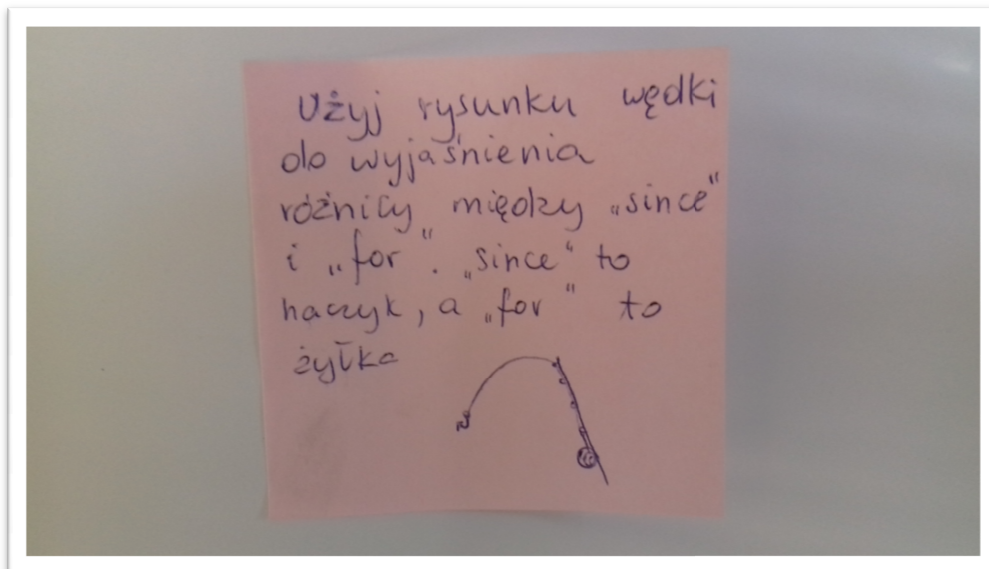 Użyj rysunku wędki
do wyjaśnienia
różnicy między „since"
i „for". „since" to
haczyk, a „for" to
żyłka